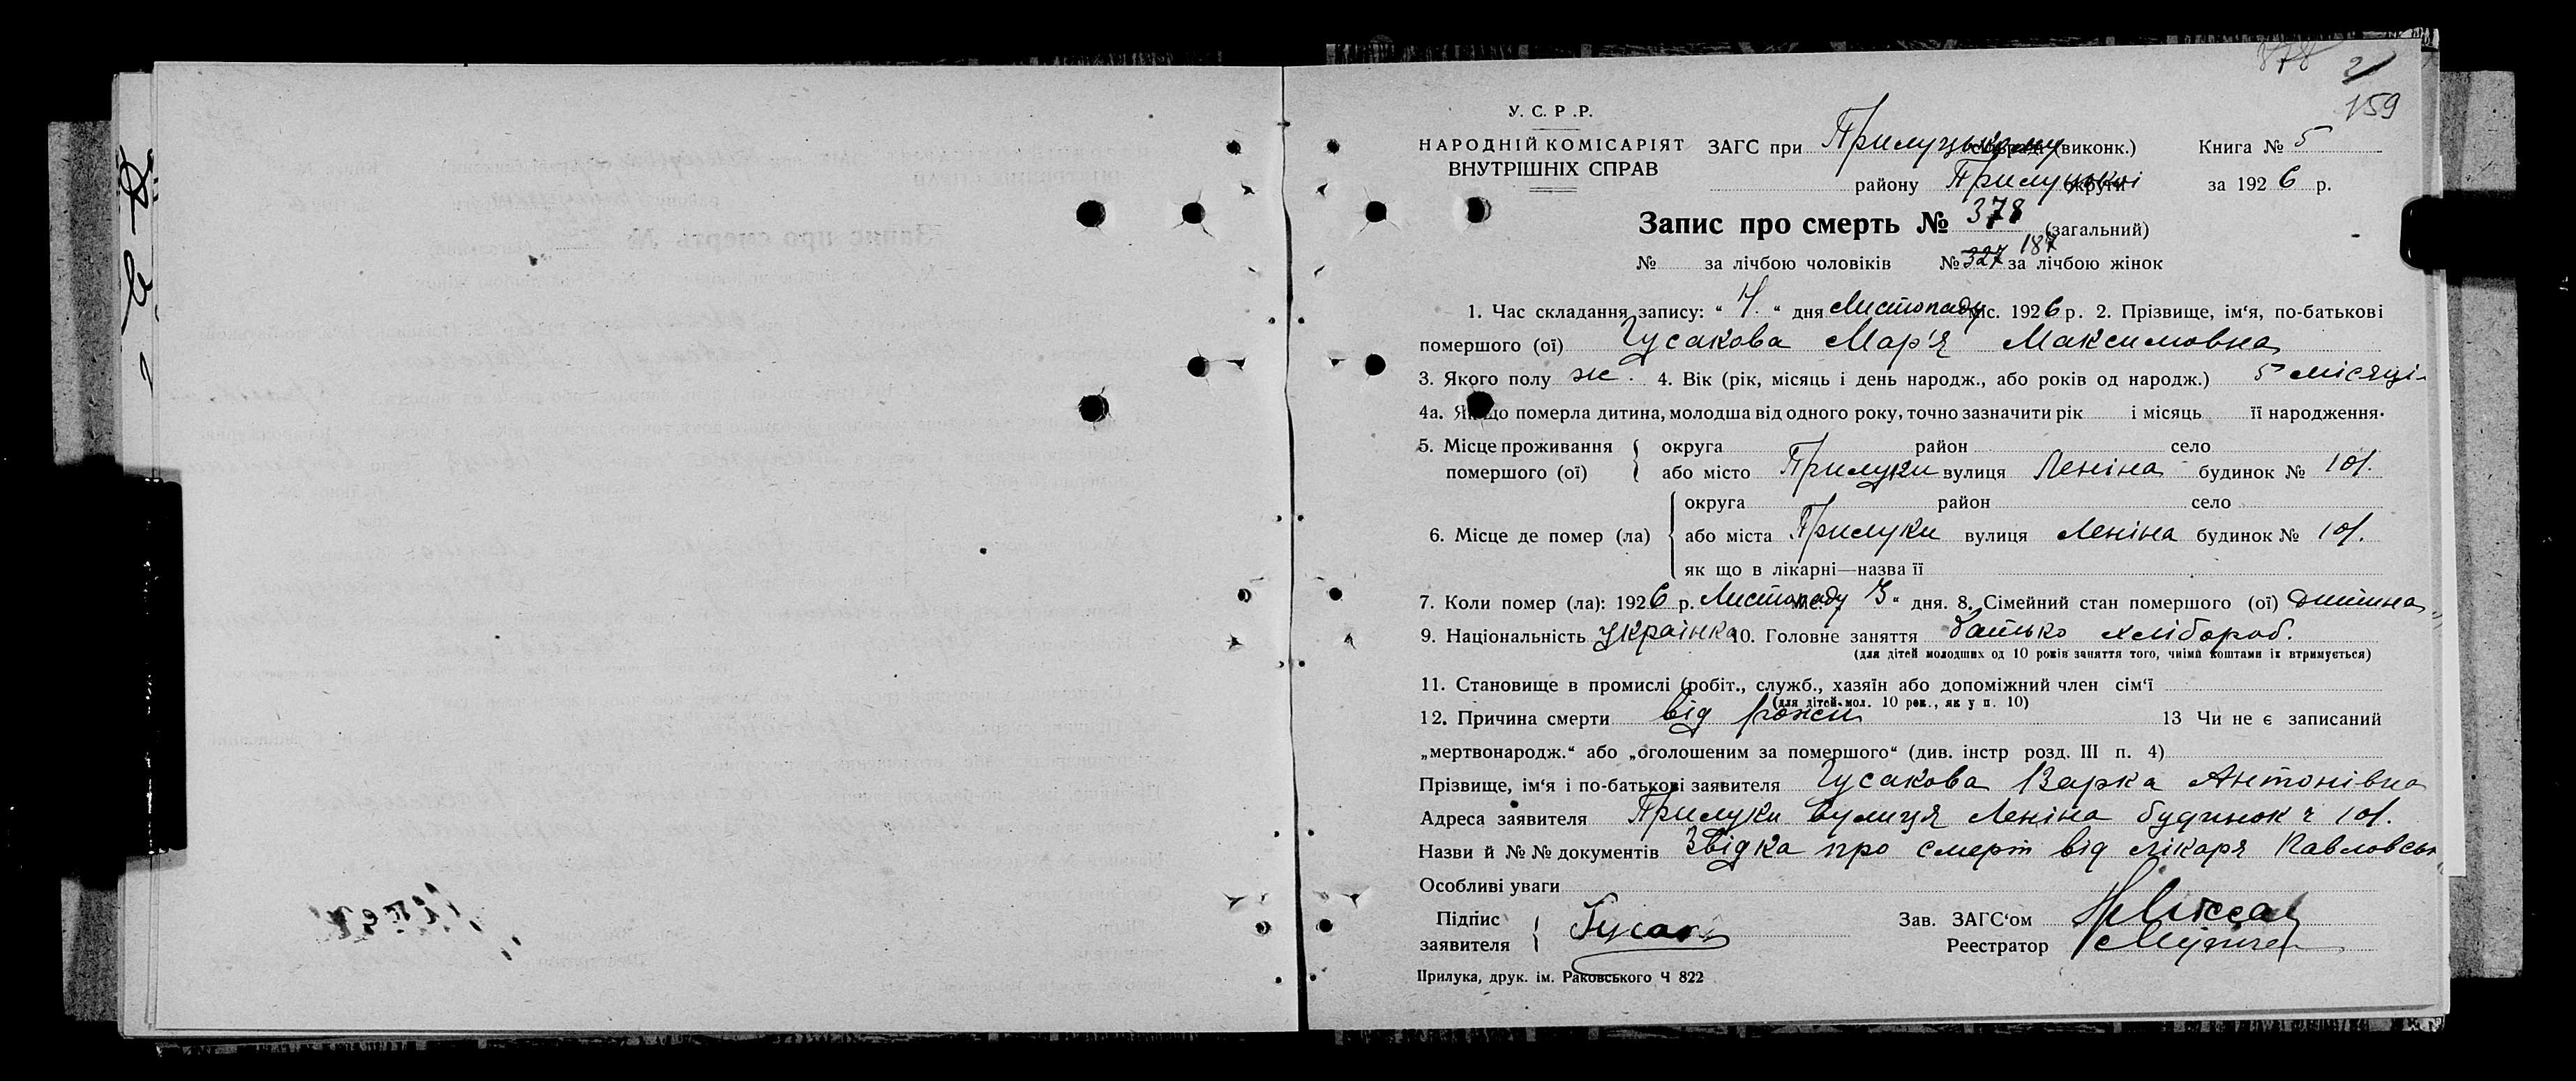 878 2
159
У. С. Р .Р.
НАРОДНІЙ КОМІСАРІЯТ
ВНУТРІШНІХ СПРАВ
ЗАГС при Прилуцькому (виконк.) Книга № 5
району Прилуцької округи за 1926 р.
Запис про смерть № 378 (загальний)
№ за лічбою чоловіків № 327 187 за лічбою жінок
1. Час складання запису: “ 4. “ дня Листопаду міс. 1926 р. 2. Прізвище, ім‘я, по-батькові
помершого (ої) Гусакова Мар'я Максимовна
3. Якого полу ж. 4. Вік (рік, місяць і день народж., або років од народж.) 5 місяці
4а. Якщо померла дитина, молодша від одного року, точно зазначити рік і місяць її народження.
5. Місце проживання помершого (ої) { округа район село
або місто Прилуки вулиця Леніна будинок № 101.
6. Місце де помер (ла) { округа район село
або міста Прилуки вулиця Леніна будинок № 101.
як що в лікарні—назва її
7. Коли помер (ла): 1926 р. Листопаду міс. 3 “ дня. 8. Сімейний стан помершого (ої) дитина
9. Національність українка 10. Головне заняття батько хлібороб.
(для дітей молодших од 10 років заняття того, чиїми коштами їх втримується)
11. Становище в промислі (робіт., служб., хазяїн або допоміжний член сім‘ї
(для дітей мол. 10 рок., як у п. 10)
12. Причина смерти від рожи 13 Чи не є записаний
„мертвонародж.“ або „оголошеним за помершого“ (див. інстр розд. III п. 4)
Прізвище, ім‘я і по-батькові заявителя Гусакова Варка Антонівна
Адреса заявителя Прилуки вулиця Леніна будинок ч 101.
Назви й №№ документів Звідка про смерт від лікаря Павловськ
Особливі уваги
Підпис
заявителя { Гусак
Зав. ЗАГС‘ом
Реестратор
Прилука, друк. ім. Раковського Ч 822